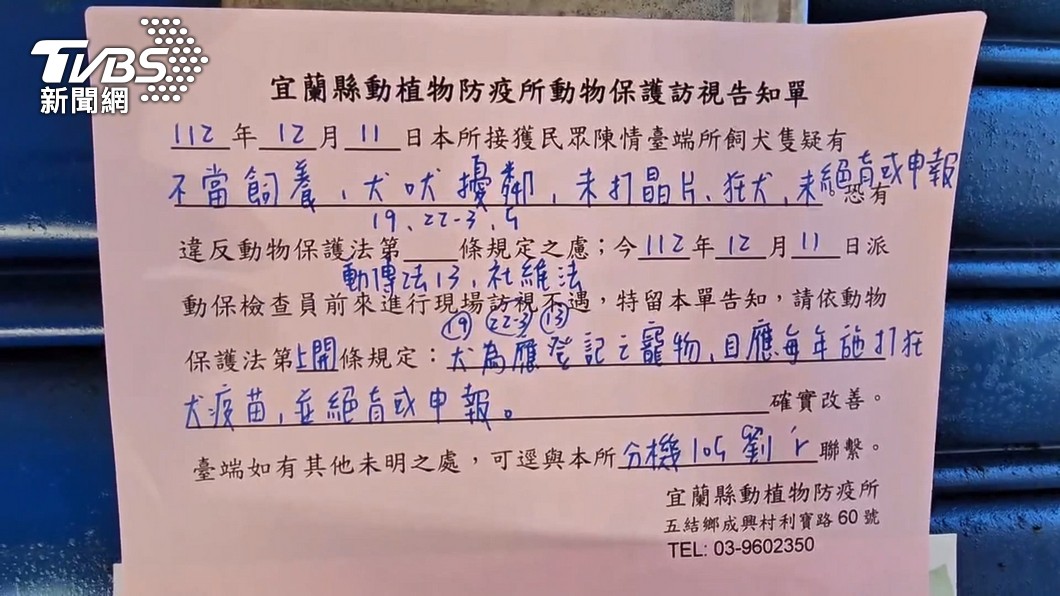 TVBS
新聞網
宜蘭縣動植物防疫所動物保護訪視告知單
112年12月11日本所接獲民眾陳情臺端所飼犬隻疑有
不當飼養、犬吠擾鄰,未打晶片、狂犬,未絕育或申報。恐有
19、22-3、5
違反動物保護法第 條規定之慮;今112年12月11日派
動傳法13,社維法
動保檢查員前來進行現場訪視不遇,特留本單告知,請依動物
19 22-3 13
保護法第上開條規定:犬為應登記之寵物,且應每年施打狂
犬疫苗,並絕育或申報。確實改善。
臺端如有其他未明之處,可逕與本所分機105劉 聯繫。
宜蘭縣動植物防疫所
五結鄉成興村利寶路60號
TEL: 03-9602350